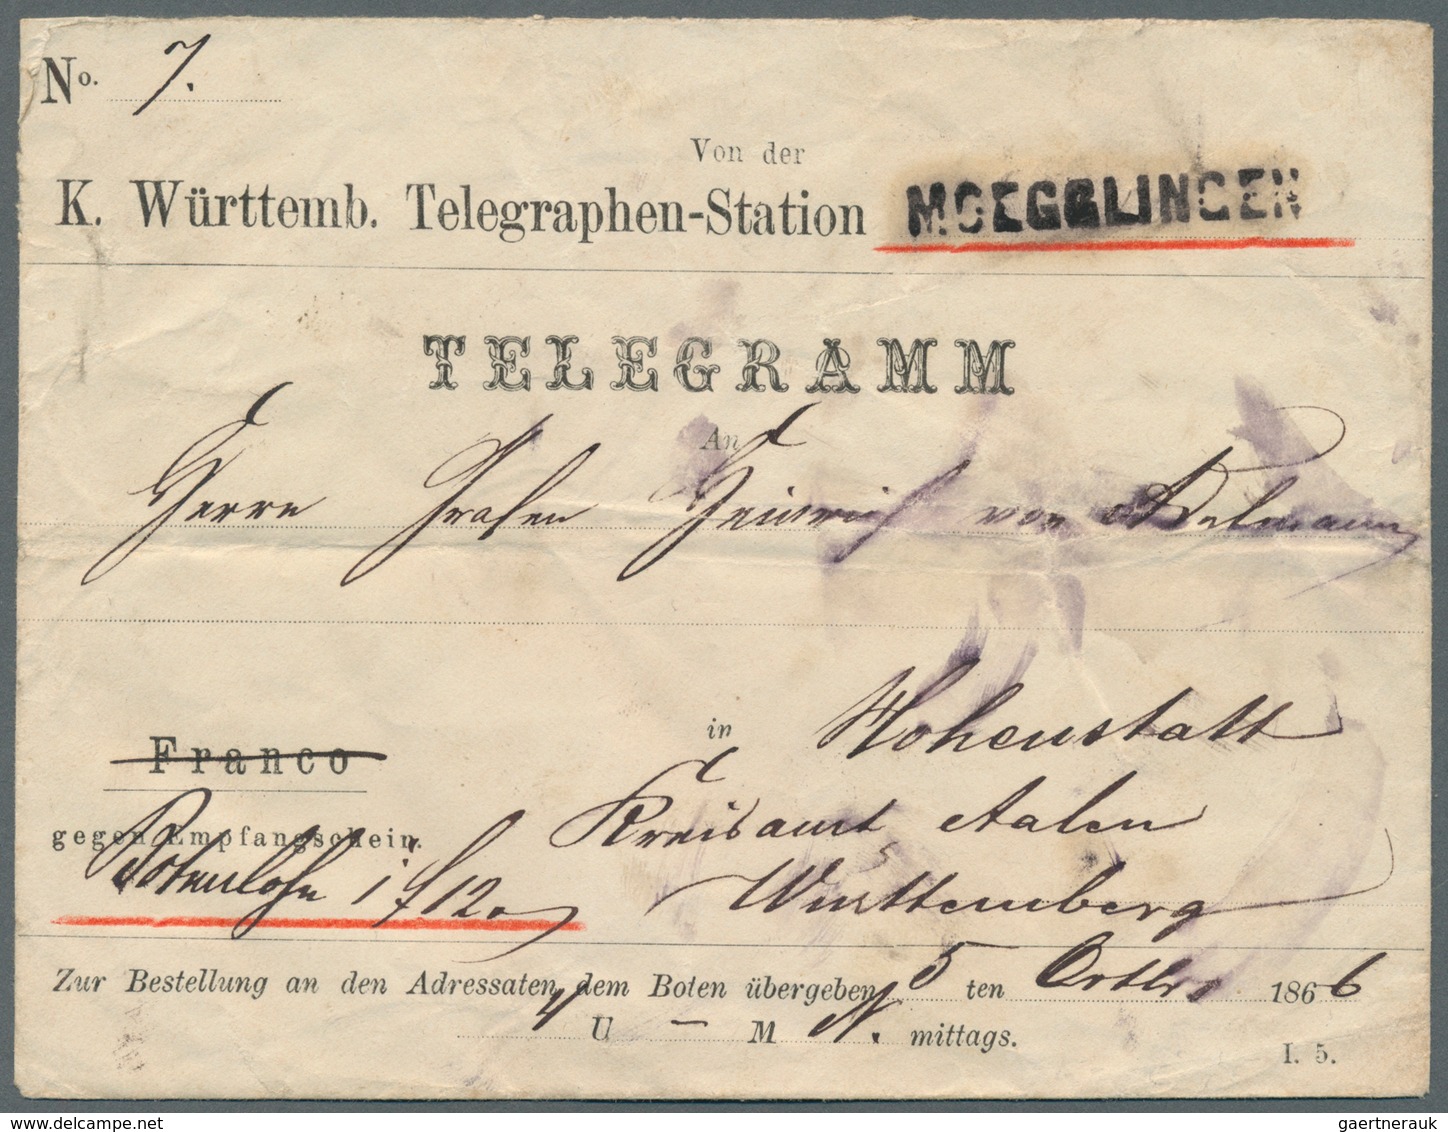 No. 7.
Von der
K. Württemb. Telegraphen-Station MOEGGLINGEN
TELEGRAMM
An
Herrn Grafen Heinrich von Adelmann
in Hohenstatt
Franco
Kreisamt Aalen
gegen Empfangschein.
Botenlohn 1 f 12
Württemberg
Zur Bestellung an den Adressaten dem Boten übergeben 5 ten 1866
4 U – M N. mittags.
I. 5.
gaertnerauk